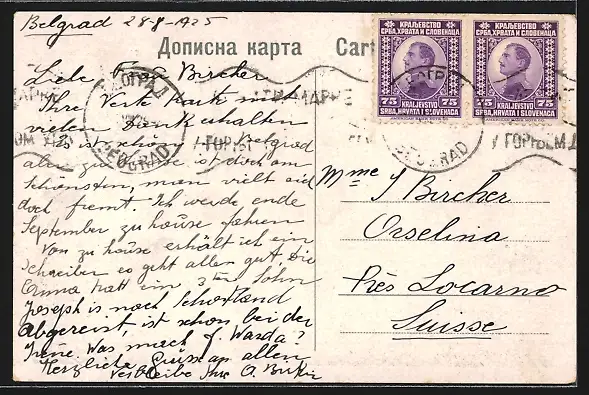 Belgrad 28-8-1925
Дописна карта Cart
КРАЉЕВСТВО
СРБА, ХРВАТА И СЛОВЕНАЦА
75 75
KRALJEVSTVO
SRBA, HRVATA I SLOVENACA
КРАЉЕВСТВО
СРБА, ХРВАТА И СЛОВЕНАЦА
75 75
KRALJEVSTVO
SRBA, HRVATA I SLOVENACA
BEOGRAD
BEOGRAD
МАРКЕ
У ГОРЊЕМ
Liebe Frau Bircher
Ihre Werte Karte mit
vielen Dank erhalten
Es ist schon in Belgrad
aber zu hause ist doch am
Schönsten, man
doch fremt. Ich werde ende
September zu hause fahren
Von zu hause erhält ich ein
Schreiben es geht allen gut Die
Emma hatt ein 3ten Sohn
Joseph is nach Schottland
abgereist ist schon bei der
Irene Was mach f. Warda?
Herzliche Grüsse an allen
Verbleibe Ihre O.
Mme J Bircher
Orselina
près Locarno
Suisse